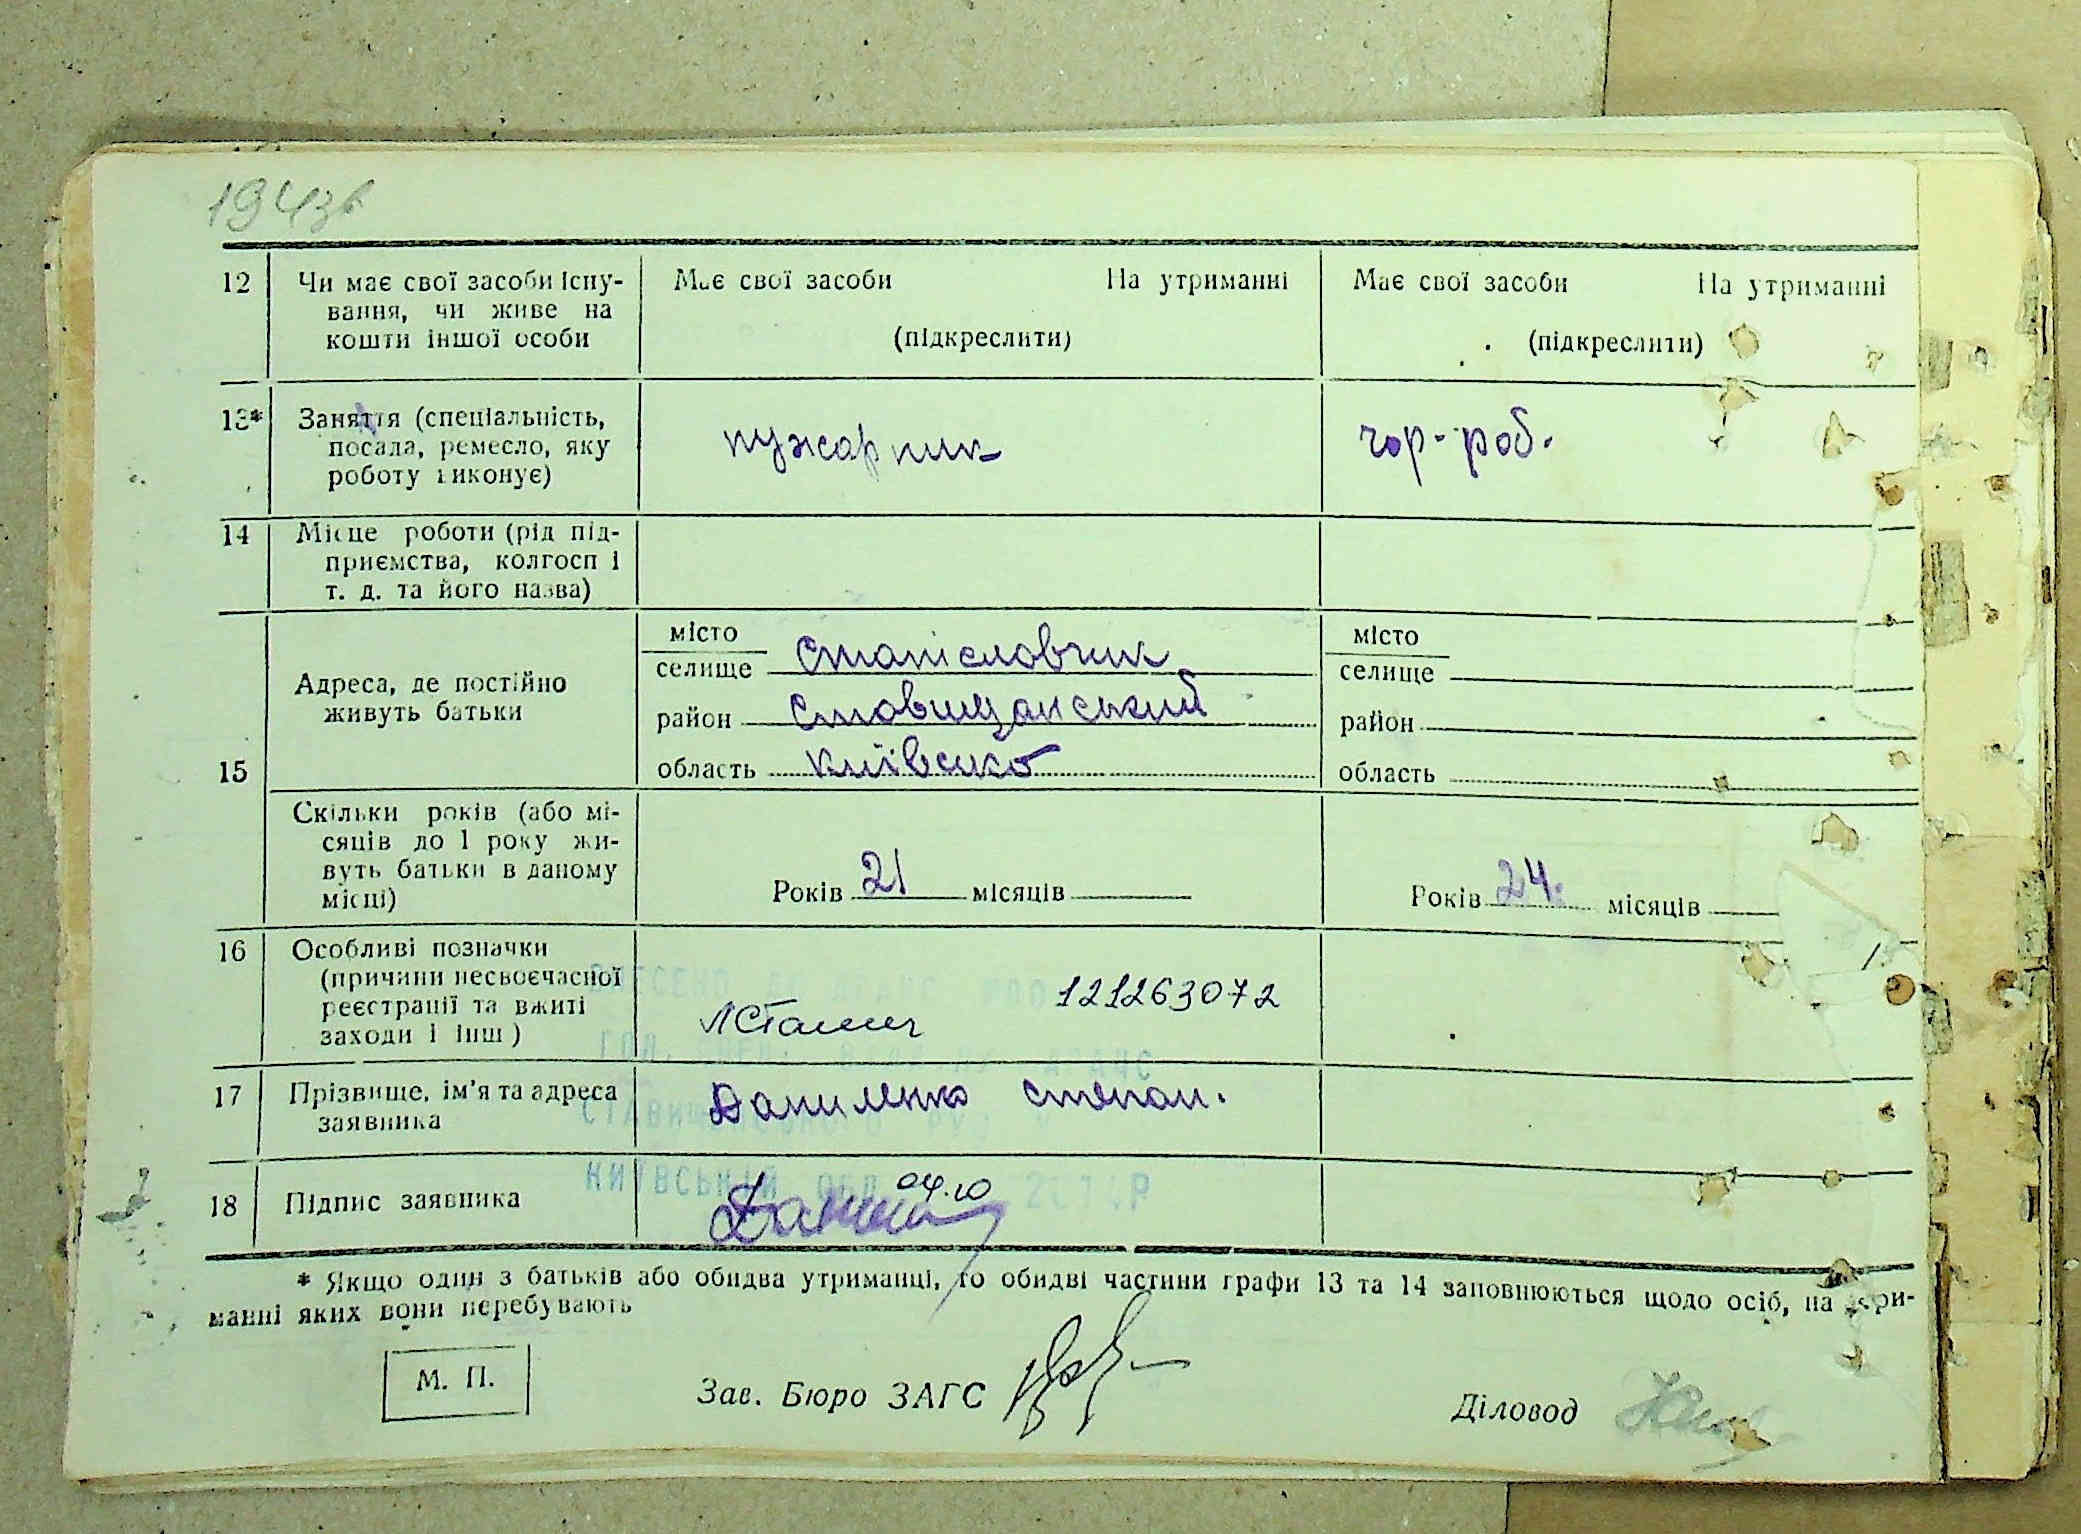 194зв
12
Чи має свої засоби існу-
вання, чи живе на
кошти іншої особи
Має свої засоби На утриманні
(підкреслити)
Має свої засоби На утриманні
(підкреслити)
13*
Заняття (спеціальність,
посада, ремесло, яку
роботу виконує)
пужарник
чор-роб.
14
Місце роботи (рід під-
приємства, колгосп і
т. д. та його назва)
15
Адреса, де постійно
живуть батьки
місто
селище Станіславчик
район Ставищанський
область Київська
місто
селище
район
область
Скільки років (або мі-
сяців до 1 року жи-
вуть батьки в даному
місці)
Років 21 місяців
Років 24. місяців
16
Особливі позначки
(причини несвоєчасної
реєстрації та вжиті
заходи і інш)
121263072
17
Прізвище, ім'я та адреса
заявника
Даниленко Степан.
18
Підпис заявника
04.10
КИЇВСЬКІЙ ОБЛ
* Якщо один з батьків або обидва утриманці, то обидві частини графи 13 та 14 заповнюються щодо осіб, на утри-
манні яких вони перебувають
М. П.
Зав. Бюро ЗАГС
Діловод